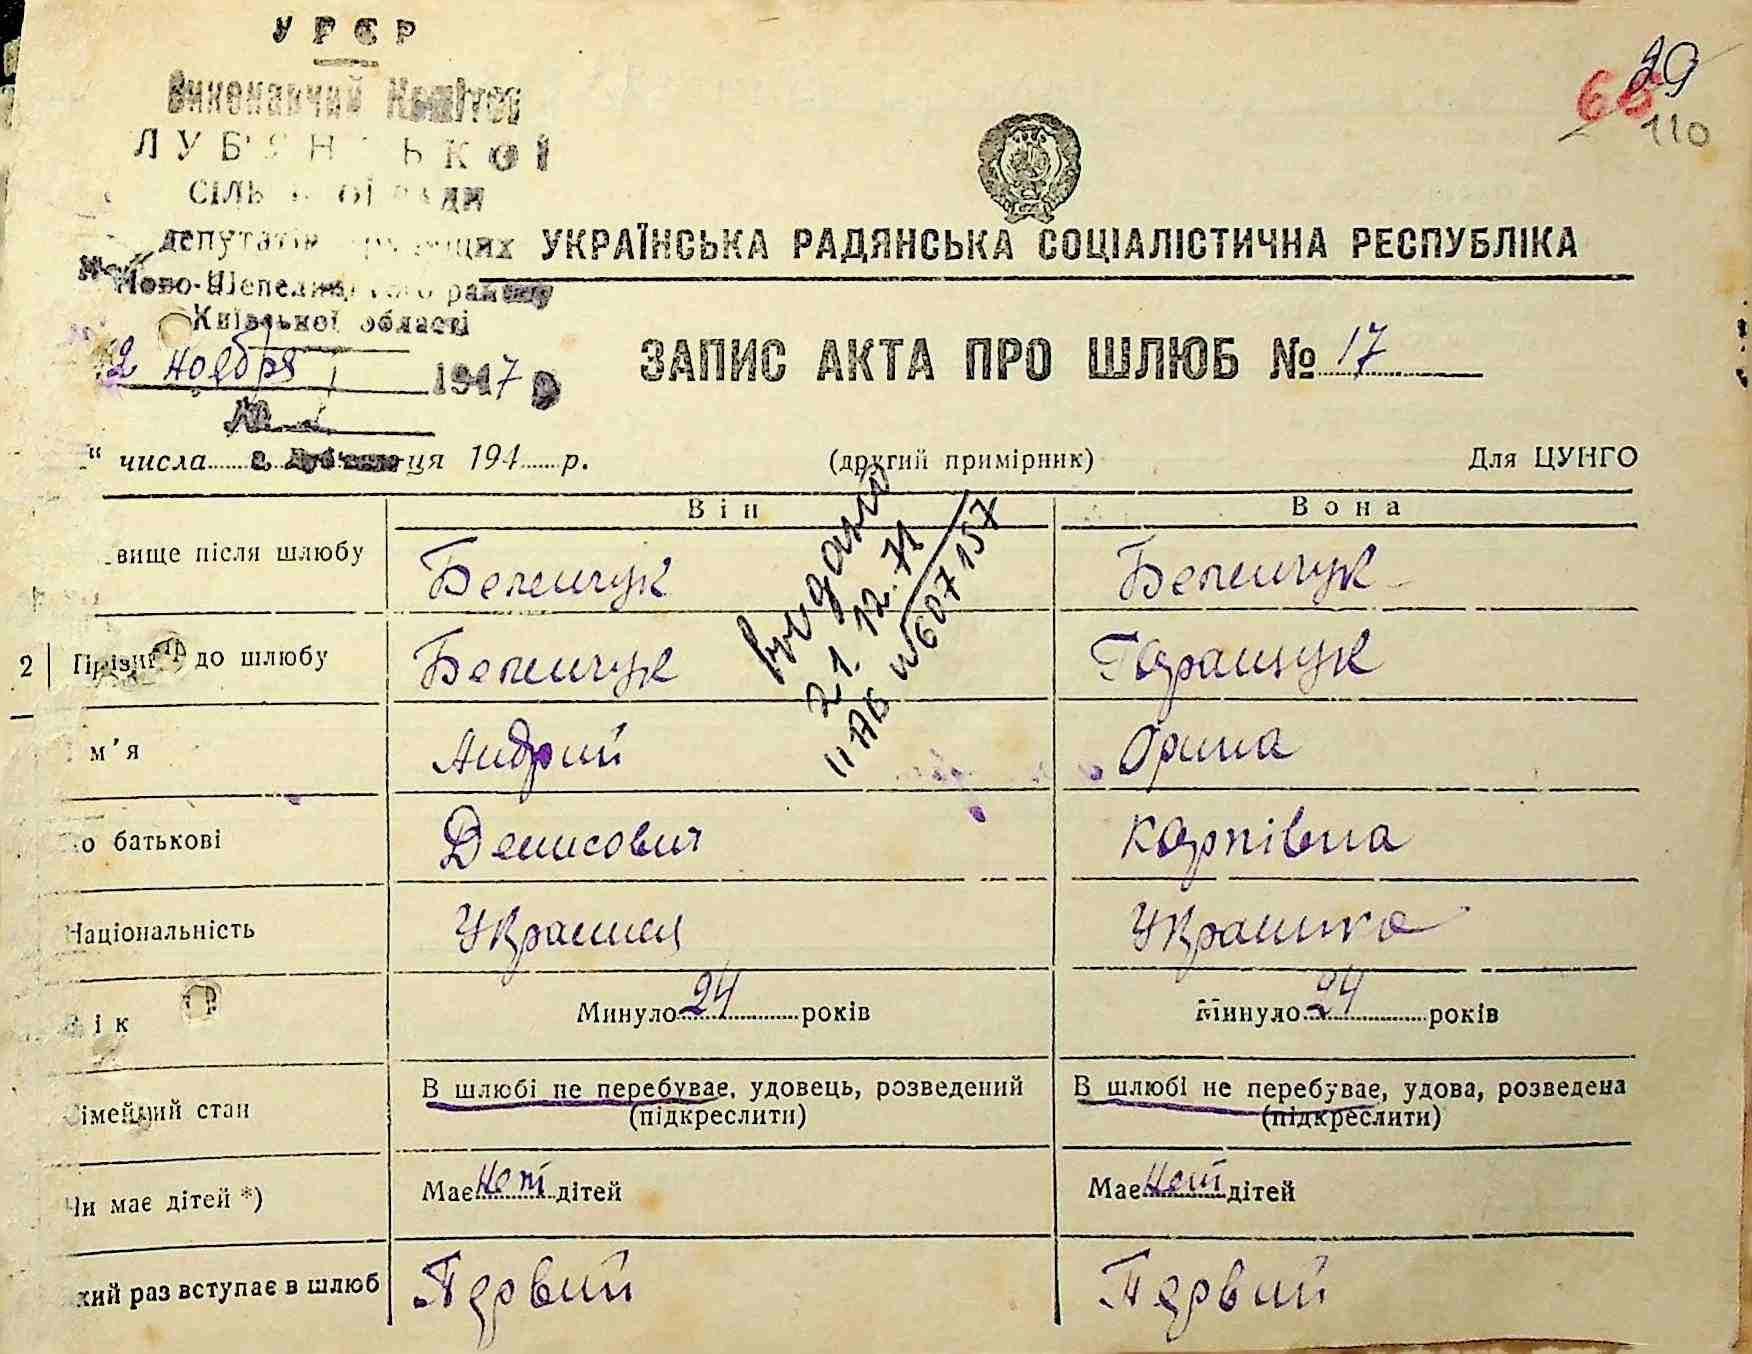 УРСР
Виконавчий Комітет
ЛУБ'ЯНСЬКОЇ
СІЛЬ ОЇ РАДИ
депутатів трудящих
Ново-Шепелицького району
Київської області
2 ноября 1947 р
№
УКРАЇНСЬКА РАДЯНСЬКА СОЦІАЛІСТИЧНА РЕСПУБЛІКА
29
110
ЗАПИС АКТА ПРО ШЛЮБ № 17
“ числа ця 194 р. (другий примірник) Для ЦУНГО
Він Вона
вище після шлюбу Бепенчук Бепенчук
2 Прізв до шлюбу Бепенчук Геращук
м'я Андрий Орина
о батькові Денисович Карпівна
Національність Украинец Украинка
ік Минуло 24 років Минуло 24 років
імейний стан В шлюбі не перебуває, удовець, розведений (підкреслити) В шлюбі не перебуває, удова, розведена (підкреслити)
Чи має дітей *) Має нет дітей Має нет дітей
кий раз вступає в шлюб Первий Первий
видано
21.12.71
II АБ № 607157